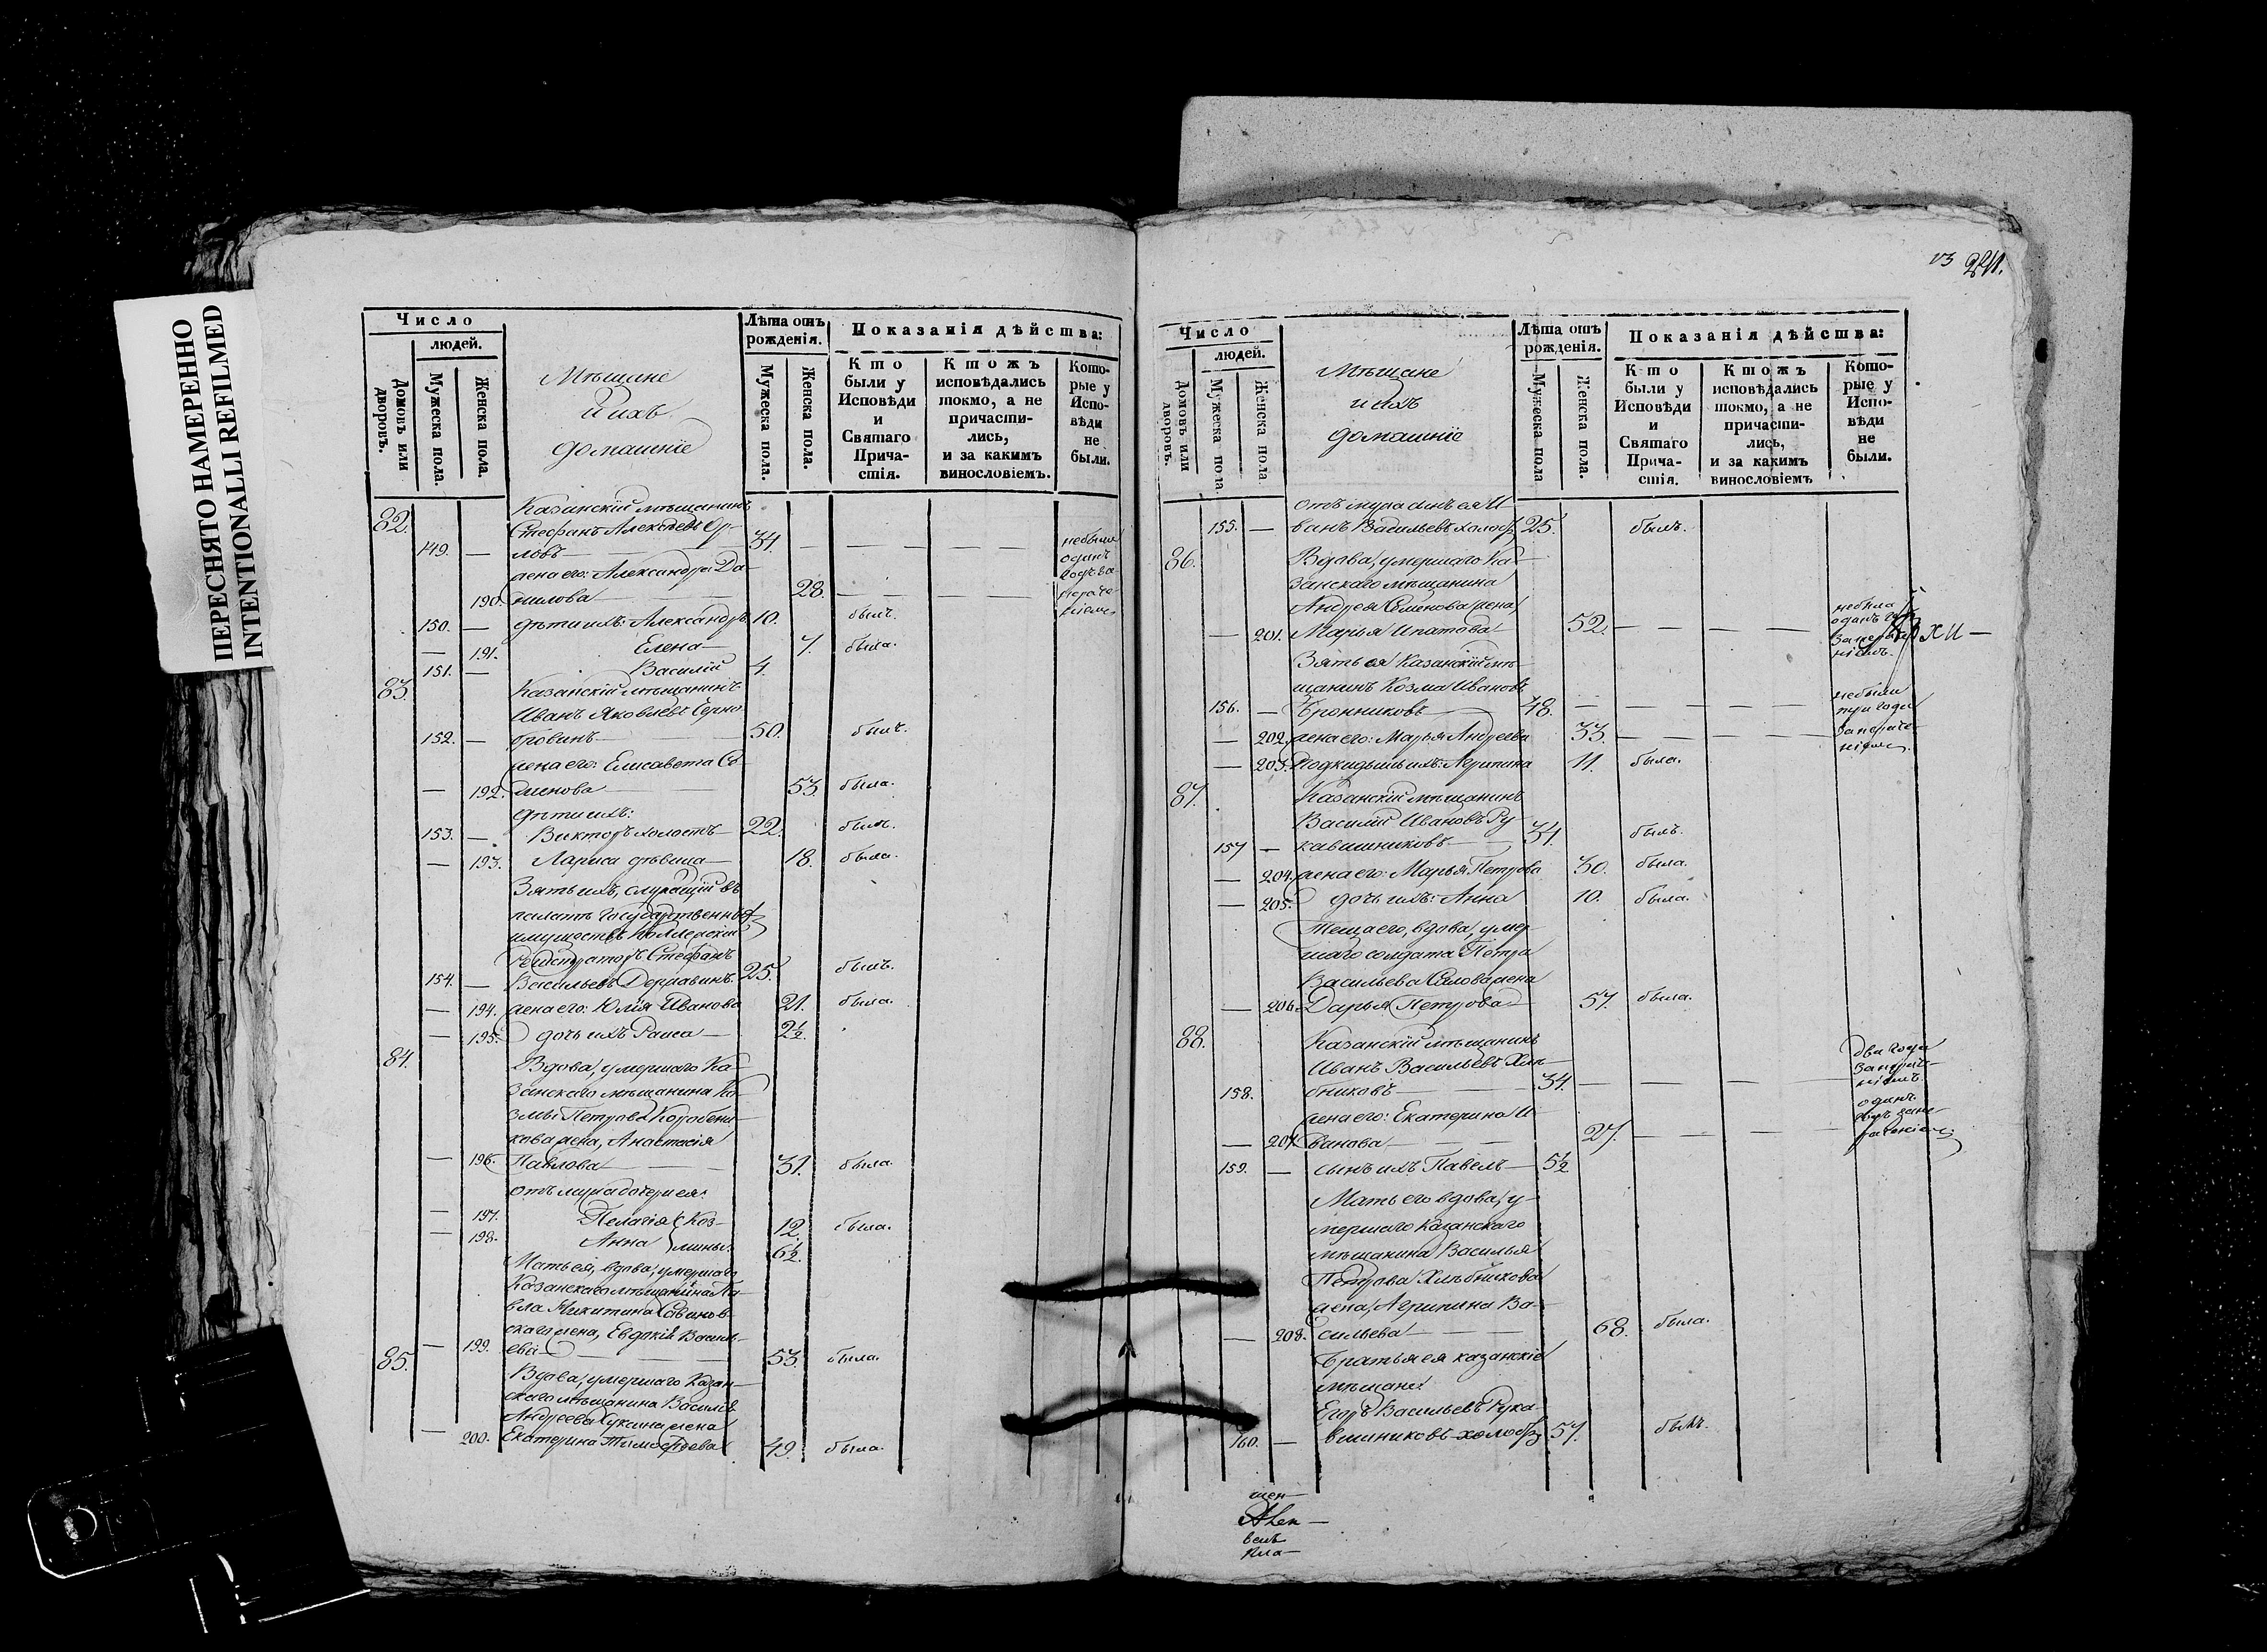 ПЕРЕСНЯТО НАМЕРЕННО
INTENTIONALLI REFILMED
Число
людей.
Домовъ или дворовъ.
Мужеска пола.
Женска пола.
Мѣщане
и ихъ
домашніе
Лѣта отъ рожденія.
Мужеска пола.
Женска пола.
Показанія дѣйства:
Кто были у Исповѣди и Святаго Прича-стія.
Ктожъ исповѣдались токмо, а не причасти-лись, и за какимъ винословіемъ.
Кото-рые у Испо-вѣди не были.
82.
Казанскій мѣщанинъ
Стефанъ Алексѣевъ Ор-
149. — ловъ — 34. — — — небыли
одинъ
жена его: Александра Да-
— 190. нилова — 28. — — —
150. — дѣти ихъ: Александръ 10. былъ.
— 191. Елена — 7. была.
151. — Василій 4.
83.
Казанскій мѣщанинъ
Иванъ Яковлевъ Черно-
152. — бровинъ — 50. былъ.
жена его: Елисавета Се-
— 192. менова — 53. была.
дѣти ихъ:
153. — Викторъ холостъ — 22. былъ.
— 193. Лариса дѣвица — 18. была.
Зять ихъ, служащій въ
палатѣ государственныхъ
имуществъ Коллежскій
Регистраторъ Стефанъ
154. — Васильевъ Державинъ. 25. былъ.
— 194. жена его: Юлія Иванова 21. была.
— 195. дочь ихъ Раиса — 2½.
84.
Вдова, умершаго Ка-
занскаго мѣщанина Ко-
змы Петрова Коробени-
кова жена, Анастасія
— 196. Павлова — 31. была.
отъ мужа дочери ея:
— 197. Пелагія Коз- 12. была.
— 198. Анна мины. 6½.
Мать ея, вдова, умершаго
Казанскаго мѣщанина Па-
вла Никитина Савинов-
скаго жена, Евдокія Василь-
— 199. ева — 53. была.
85.
Вдова, умершаго Казан-
скаго мѣщанина Василья
Андреева жена
— 200. Екатерина Тимофѣева 49. была.
Число
людей.
Домовъ или дворовъ.
Мужеска пола
Женска пола
Мѣщане
и ихъ
домашніе
Лѣта отъ рожденія.
Мужеска пола
Женска пола.
Показанія дѣйства:
Кто были у Исповѣди и Святаго Прича-стія.
Ктожъ исповѣдались токмо, а не причасти-лись, и за какимъ винословіемъ
Кото-рые у Испо-вѣди не были.
отъ мужа сынъ ея И-
155. — ванъ Васильевъ холостъ 25. былъ.
86.
Вдова, умершаго Ка-
занскаго мѣщанина
Андрея Семенова жена,
— 201. Марья Ипатова — 52. — — — — небыла
одинъ годъ
за нераче-
ніемъ.
Зять ея Казанскій мѣ-
щанинъ Козма Ивановъ
156. — Бронниковъ — 48. — — — — небыли
три года
— 202. жена его: Марья Андреева 33. — — — — за нераче-
ніемъ.
— 203. Подкидышъ ихъ: Агрипина 11. была.
87.
Казанскій мѣщанинъ
Василій Ивановъ Ру-
157 — кавишниковъ — 34. былъ.
— 204. жена его: Марья Петрова 30. была.
— 205. дочь ихъ: Анна 10. была.
Теща его, вдова, умер-
шаго солдата Петра
Васильева жена
— 206. Дарья Петрова — 57. была.
88.
Казанскій мѣщанинъ
Иванъ Васильевъ Хлѣ-
158. — бниковъ — 34. — — — — два года
за нераче-
ніемъ.
жена его: Екатерина И-
— 207. ванова — 27. — — — — одинъ
годъ за не-
раченіемъ.
159. — сынъ ихъ Павелъ — 5½
Мать его вдова, у-
мершаго Казанскаго
мѣщанина Василья
Петрова Хлѣбникова
жена, Агрипина Ва-
— 208. сильева — 68. была.
Братья ея казанскіе
мѣщане:
Егоръ Васильевъ Рука-
160. — вишниковъ холостъ 57. былъ.